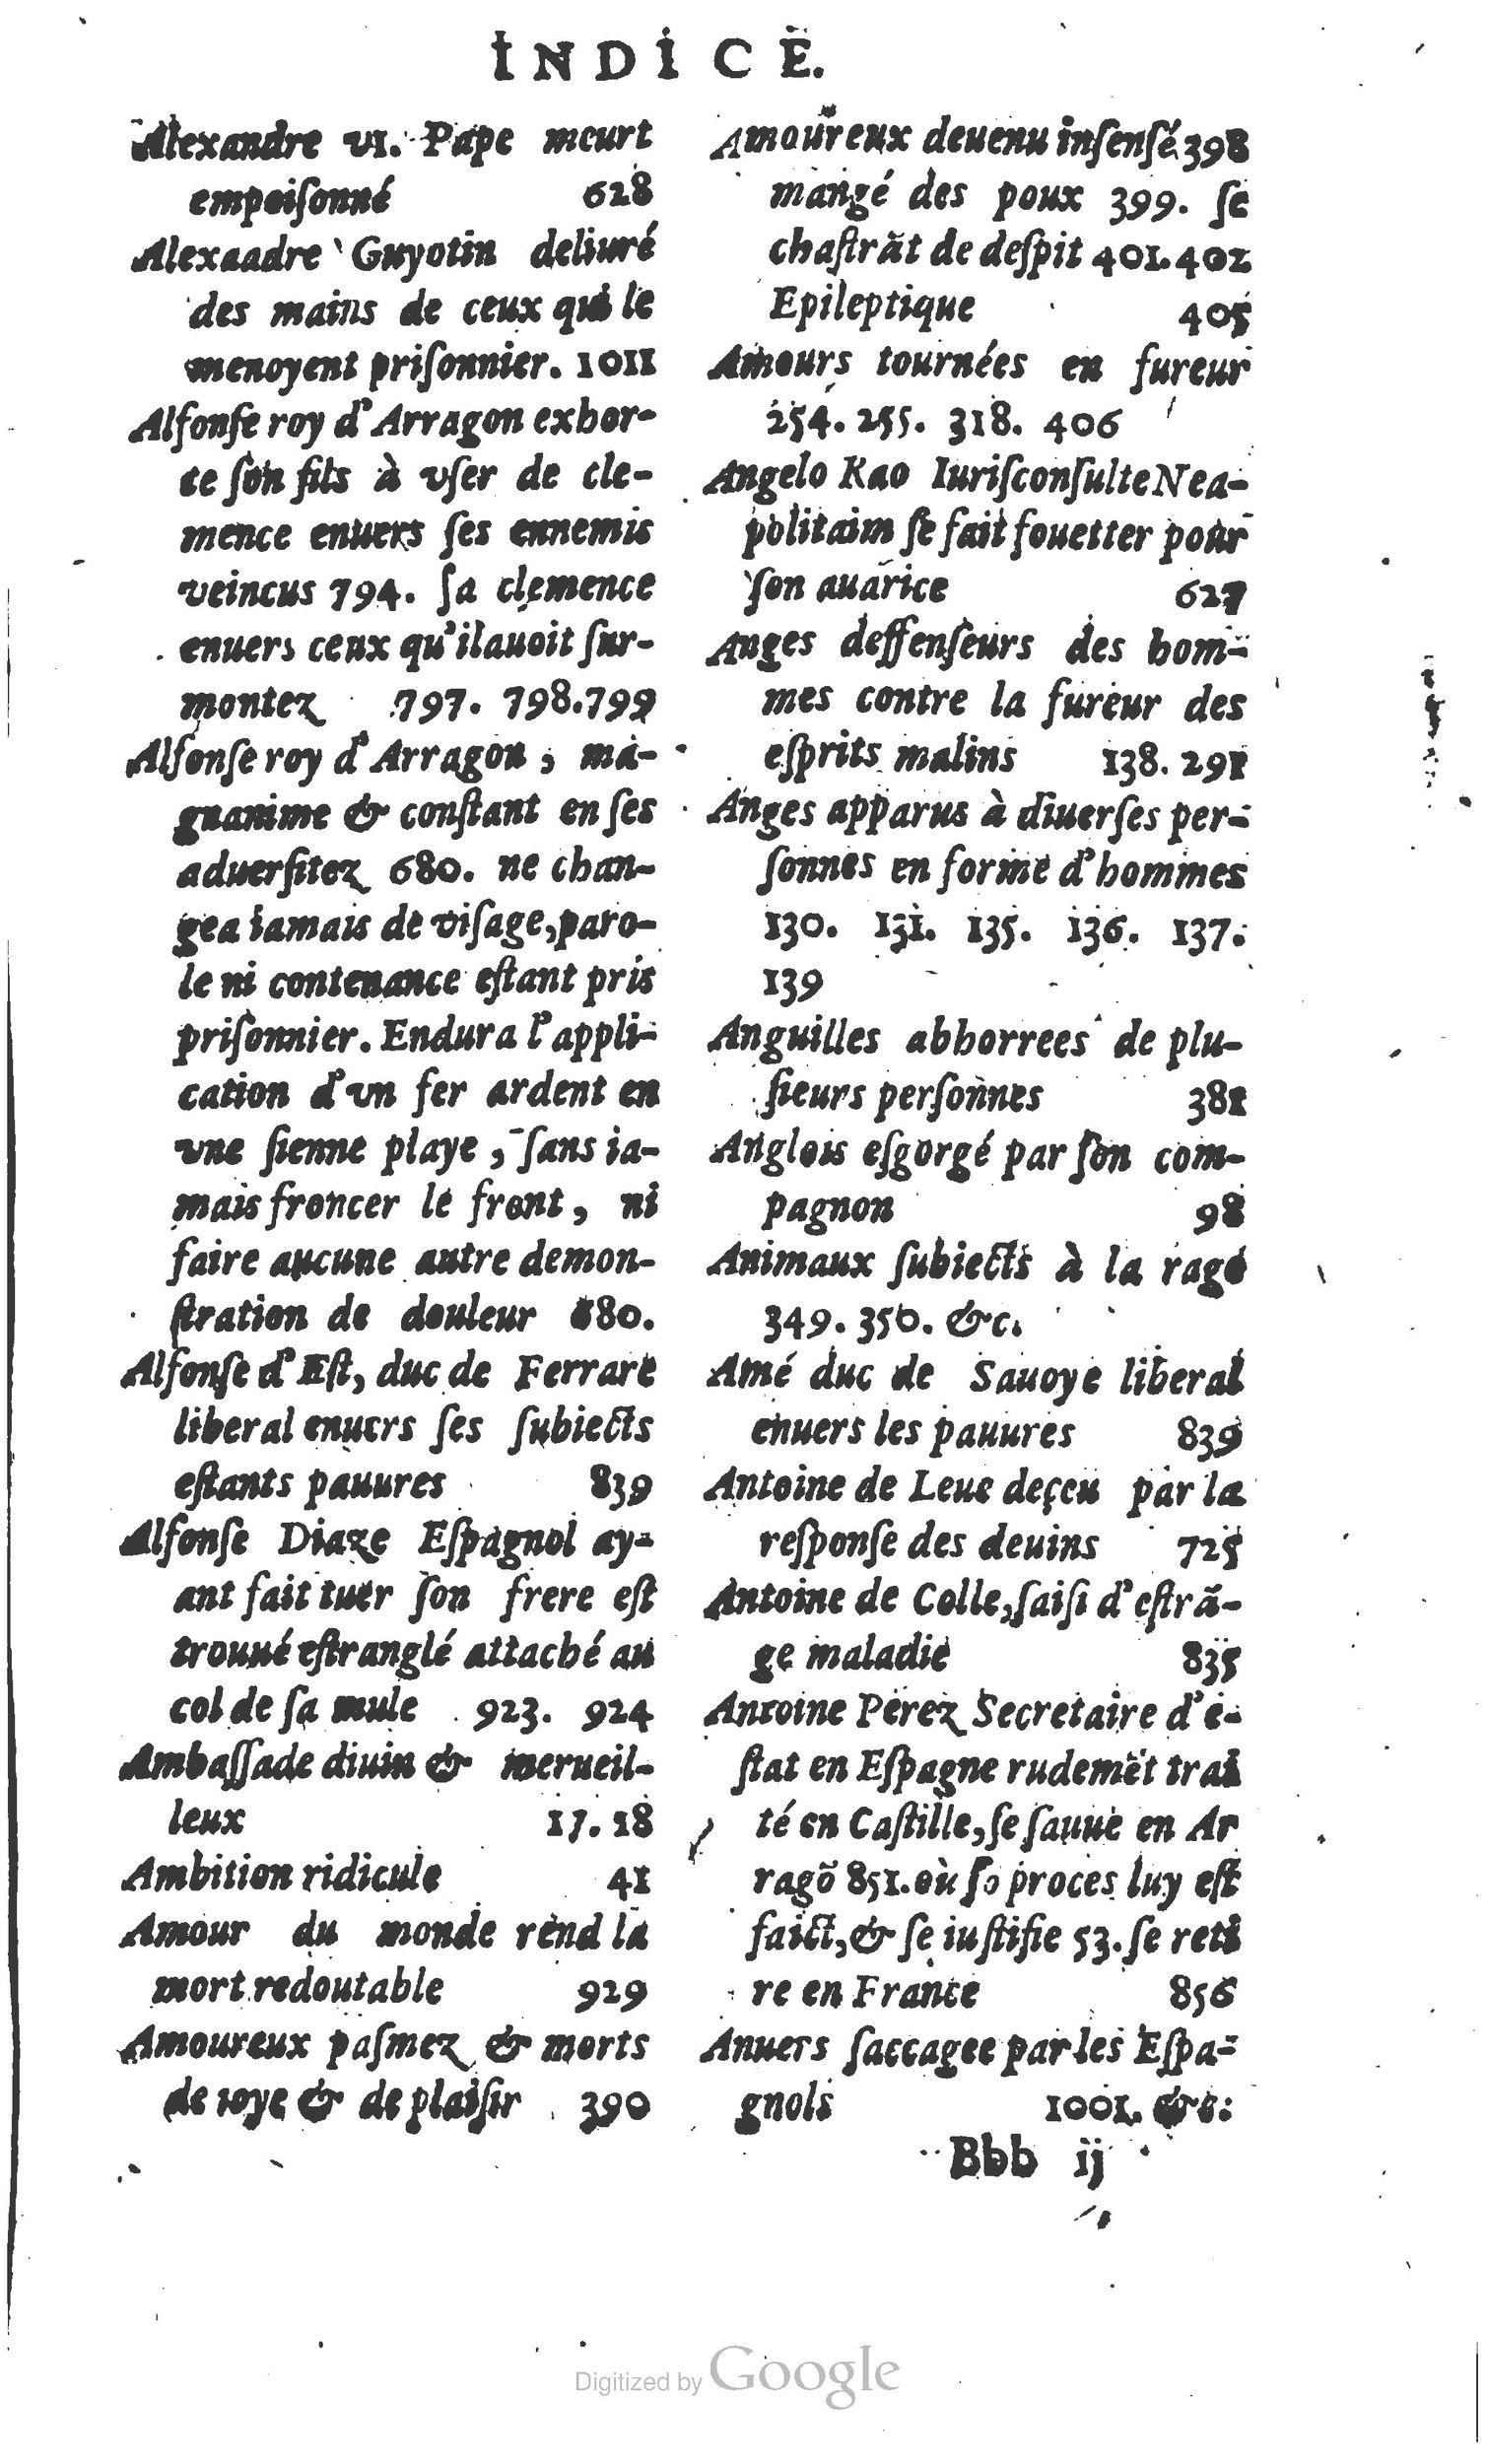 INDICE.
Alexandre VI. Pape meurt
empoiſonné 628
Alexaadre Guyotin deliuré
des mains de ceux qui le
menoyent priſonnier. 1011
Alfonſe roy d'Arragon exhor-
te ſon fils à vſer de cle-
mence enuers ſes ennemis
veincus 794. ſa clemence
enuers ceux qu'ilauoit ſur-
montez 797. 798.799
Alfonſe roy d'Arragon, ma-
gnanime & conſtant en ſes
aduerſitez 680. ne chan-
gea iamais de viſage, paro-
le ni contenance eſtant pris
priſonnier. Endura l'appli-
cation d'vn fer ardent en
vne ſienne playe, ſans ia-
mais froncer le front, ni
faire aucune autre demon-
ſtration de douleur 680.
Alfonſe d'Eſt, duc de Ferrare
liberal enuers ſes ſubiects
eſtants pauures 839
Alfonſe Diaze Eſpagnol ay-
ant fait tuer ſon frere eſt
trouué eſtranglé attaché au
col de ſa mule 923. 924
Ambaſſade diuin & merueil-
leux 17.18
Ambition ridicule 41
Amour du monde rend la
mort redoutable 929
Amoureux paſmez & morts
de ioye & de plaiſir 390
Amoureux deuenu inſenſé 398
mangé des poux 399. ſe
chaſtrăt de deſpit 401.402
Epileptique 405
Amours tournées en fureur
254. 255. 318. 406
Angelo Kao Iuriſconſulte Nea-
politaim ſe fait fouetter pour
ſon auarice 627
Anges deffenſeurs des hom-
mes contre la fureur des
eſprits malins 138. 291
Anges apparus à diuerſes per-
ſonnes en forme d'hommes
130. 131. 135. 136. 137.
139
Anguilles abhorrees de plu-
ſieurs perſonnes 381
Anglois eſgorgé par ſon com-
pagnon 98
Animaux ſubiects à la rage
349. 350. &c.
Amé duc de Sauoye liberal
enuers les pauures 839
Antoine de Leue deçeu par la
reſponſe des deuins 725
Antoine de Colle, ſaiſi d'eſtrã-
ge maladie 835
Antoine Perez Secretaire d'e-
ſtat en Eſpagne rudemẽt trai
té en Caſtille, ſe ſauue en Ar
ragõ 851. où ſõ proces luy eſt
faict, & ſe iuſtifie 53. ſe reti
re en France 856
Anuers ſaccagee par les Eſpa-
gnols 1001. &c.
Bbb ij
Digitized by Google